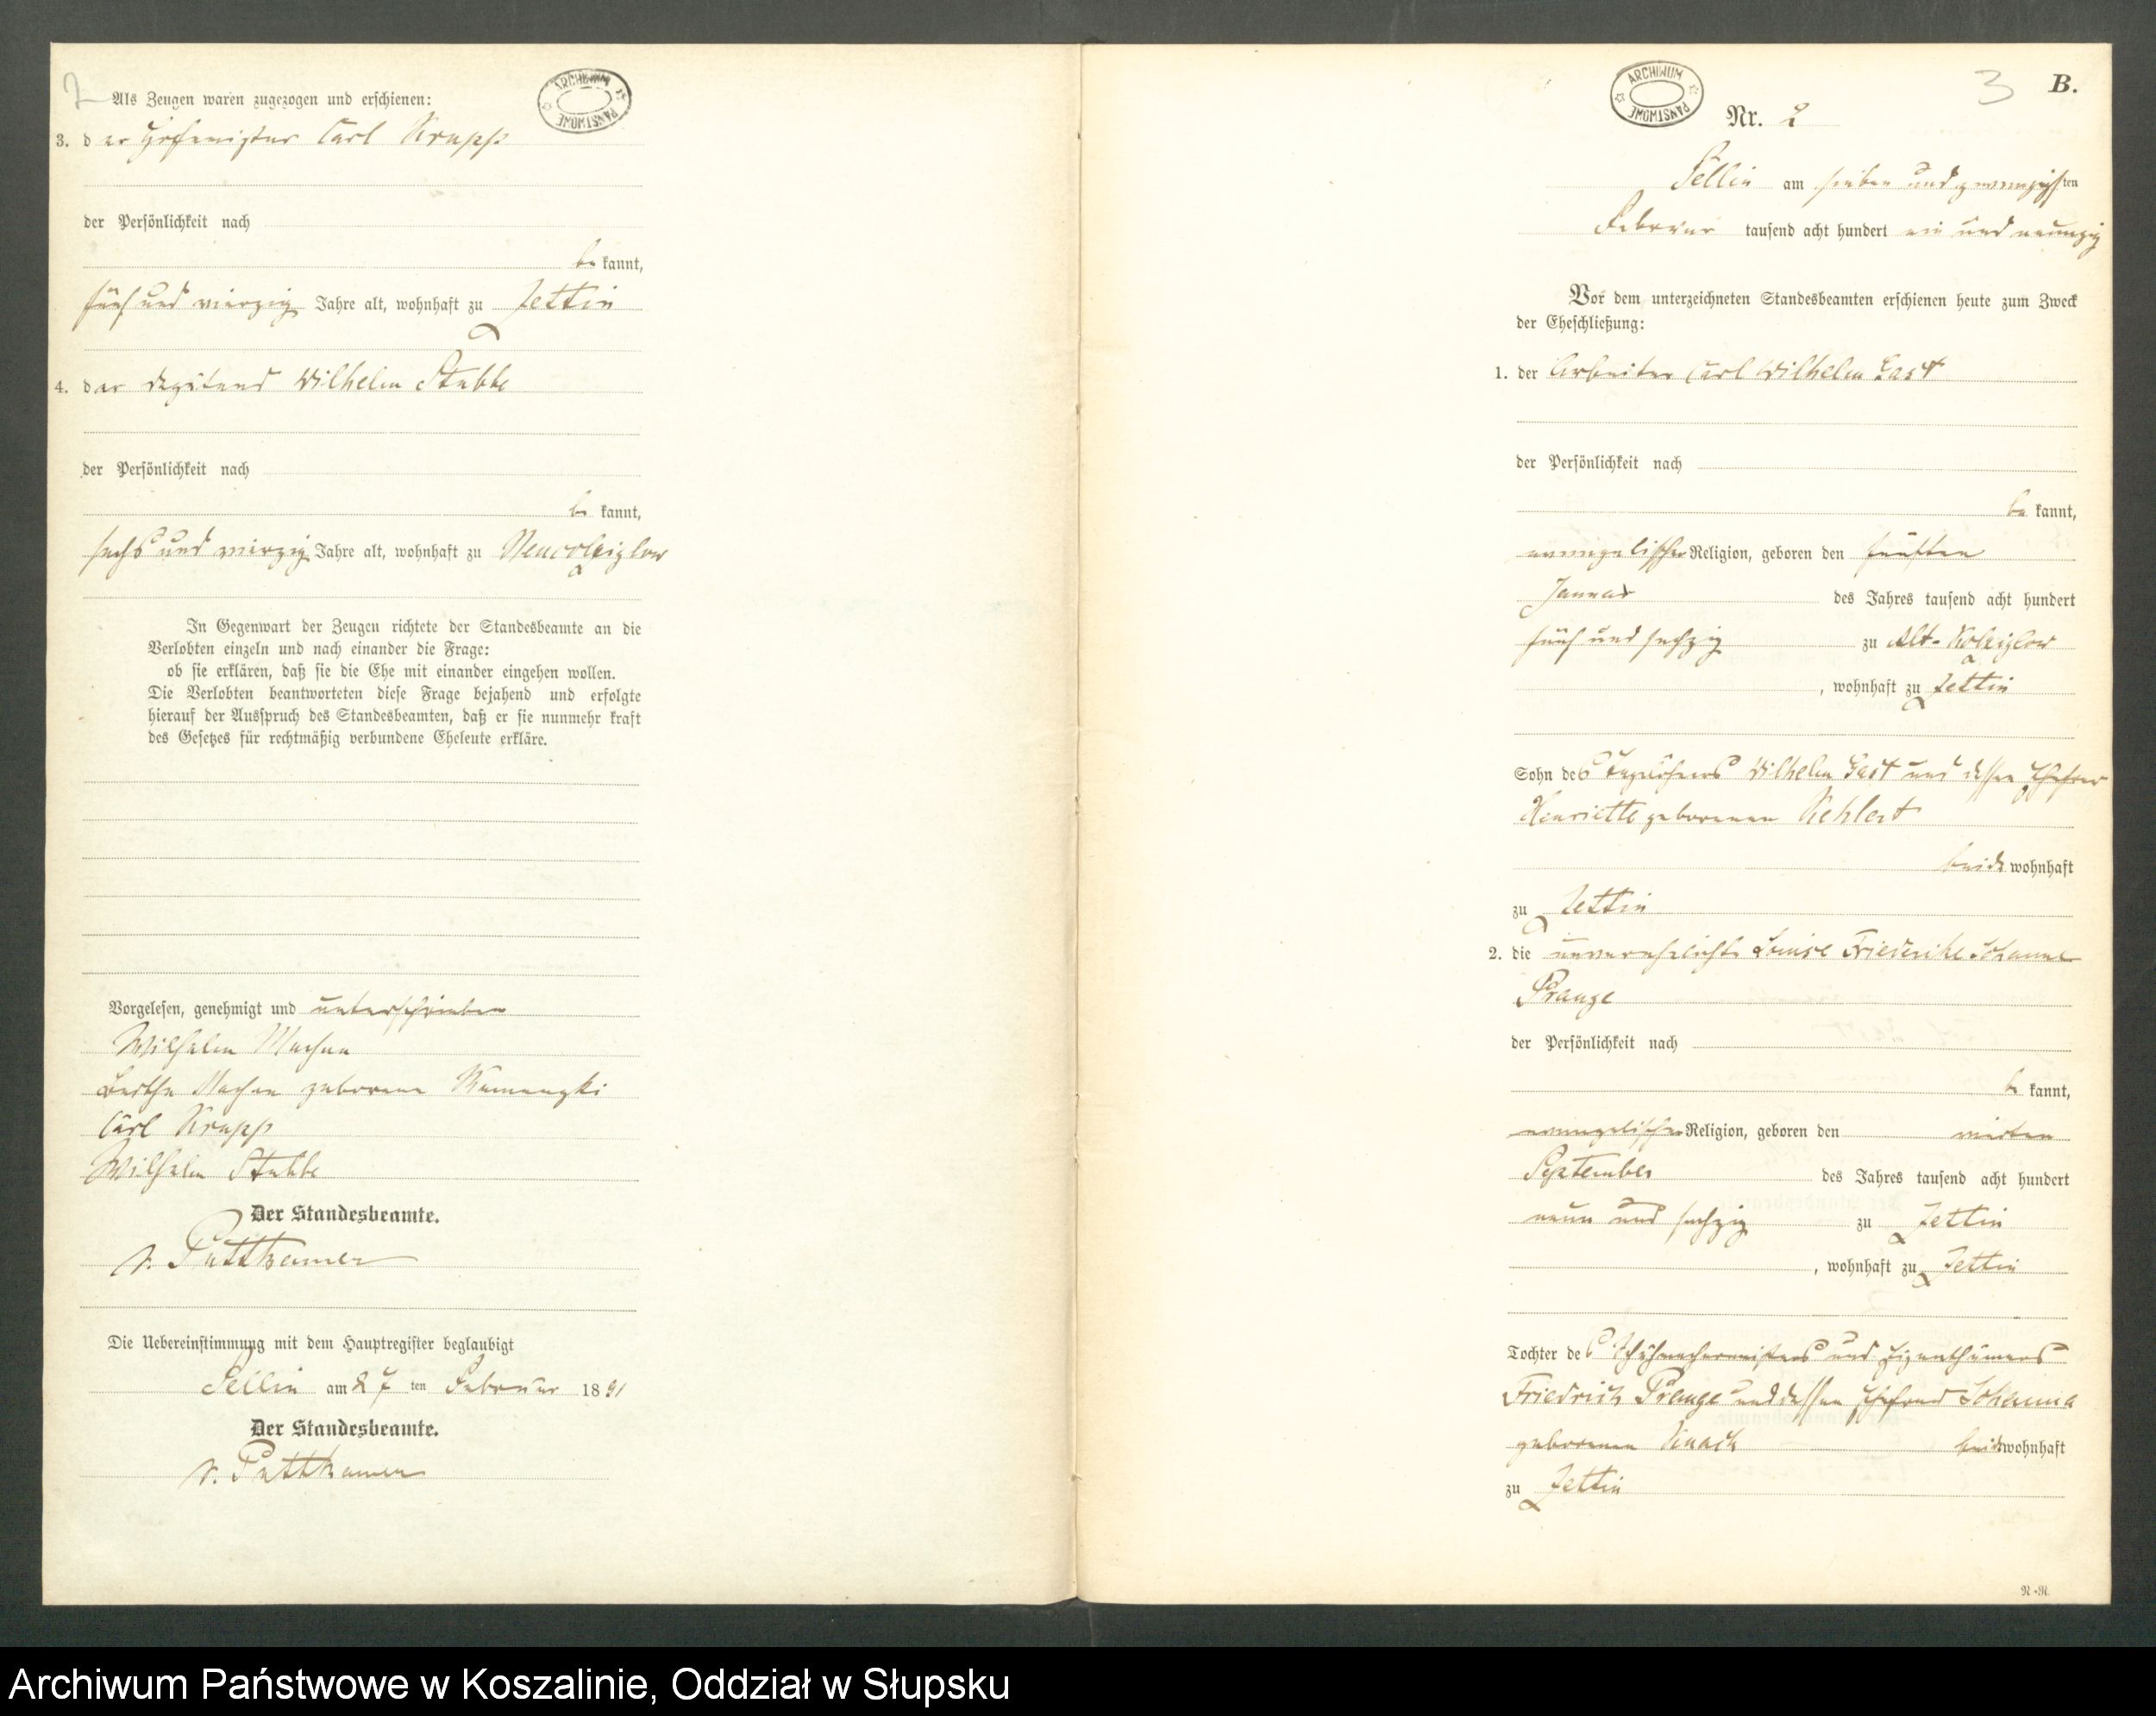 2
Als Zeugen waren zugezogen und erschienen:
ARCHIWUM PAŃSTWOWE
3. der Hofmeister Carl Krupp
der Persönlichkeit nach
be kannt,
fünf und vierzig Jahre alt, wohnhaft zu Zettin
4. der Wilhelm Stubbe
der Persönlichkeit nach
be kannt,
sechs und vierzig Jahre alt, wohnhaft zu Neucolziglow
In Gegenwart der Zeugen richtete der Standesbeamte an die
Verlobten einzeln und nach einander die Frage:
ob sie erklären, daß sie die Ehe mit einander eingehen wollen.
Die Verlobten beantworteten diese Frage bejahend und erfolgte
hierauf der Ausspruch des Standesbeamten, daß er sie nunmehr kraft
des Gesetzes für rechtmäßig verbundene Eheleute erkläre.
Vorgelesen, genehmigt und unterschrieben
Wilhelm Machan
Bertha Machan geborene
Carl Krupp
Wilhelm Stubbe
Der Standesbeamte.
v. Puttkamer
Die Uebereinstimmung mit dem Hauptregister beglaubigt
Sellin am 27 ten Februar 18 91
Der Standesbeamte.
v. Puttkamer
ARCHIWUM PAŃSTWOWE
3
B.
Nr. 2
Sellin am sieben und zwanzigsten
Februar tausend acht hundert ein und neunzig
Vor dem unterzeichneten Standesbeamten erschienen heute zum Zweck
der Eheschließung:
1. der Arbeiter Carl Wilhelm Gast
der Persönlichkeit nach
be kannt,
evangelischer Religion, geboren den fünften
Januar des Jahres tausend acht hundert
fünf und sechzig zu Alt-Kolziglow
, wohnhaft zu Zettin
Sohn des Tagelöhners Wilhelm Gast und dessen Ehefrau
Henriette geborenen Kehlert
beide wohnhaft
zu Zettin
2. die unverehelichte Louise Friederike Johanne
Prange
der Persönlichkeit nach
be kannt,
evangelischer Religion, geboren den vierten
September des Jahres tausend acht hundert
neun und sechzig zu Zettin
, wohnhaft zu Zettin
Tochter des Schuhmachermeisters und Eigenthümers
Friedrich Prange und dessen Ehefrau Johanna
geborenen Knack beide wohnhaft
zu Zettin
N.-N.
Archiwum Państwowe w Koszalinie, Oddział w Słupsku